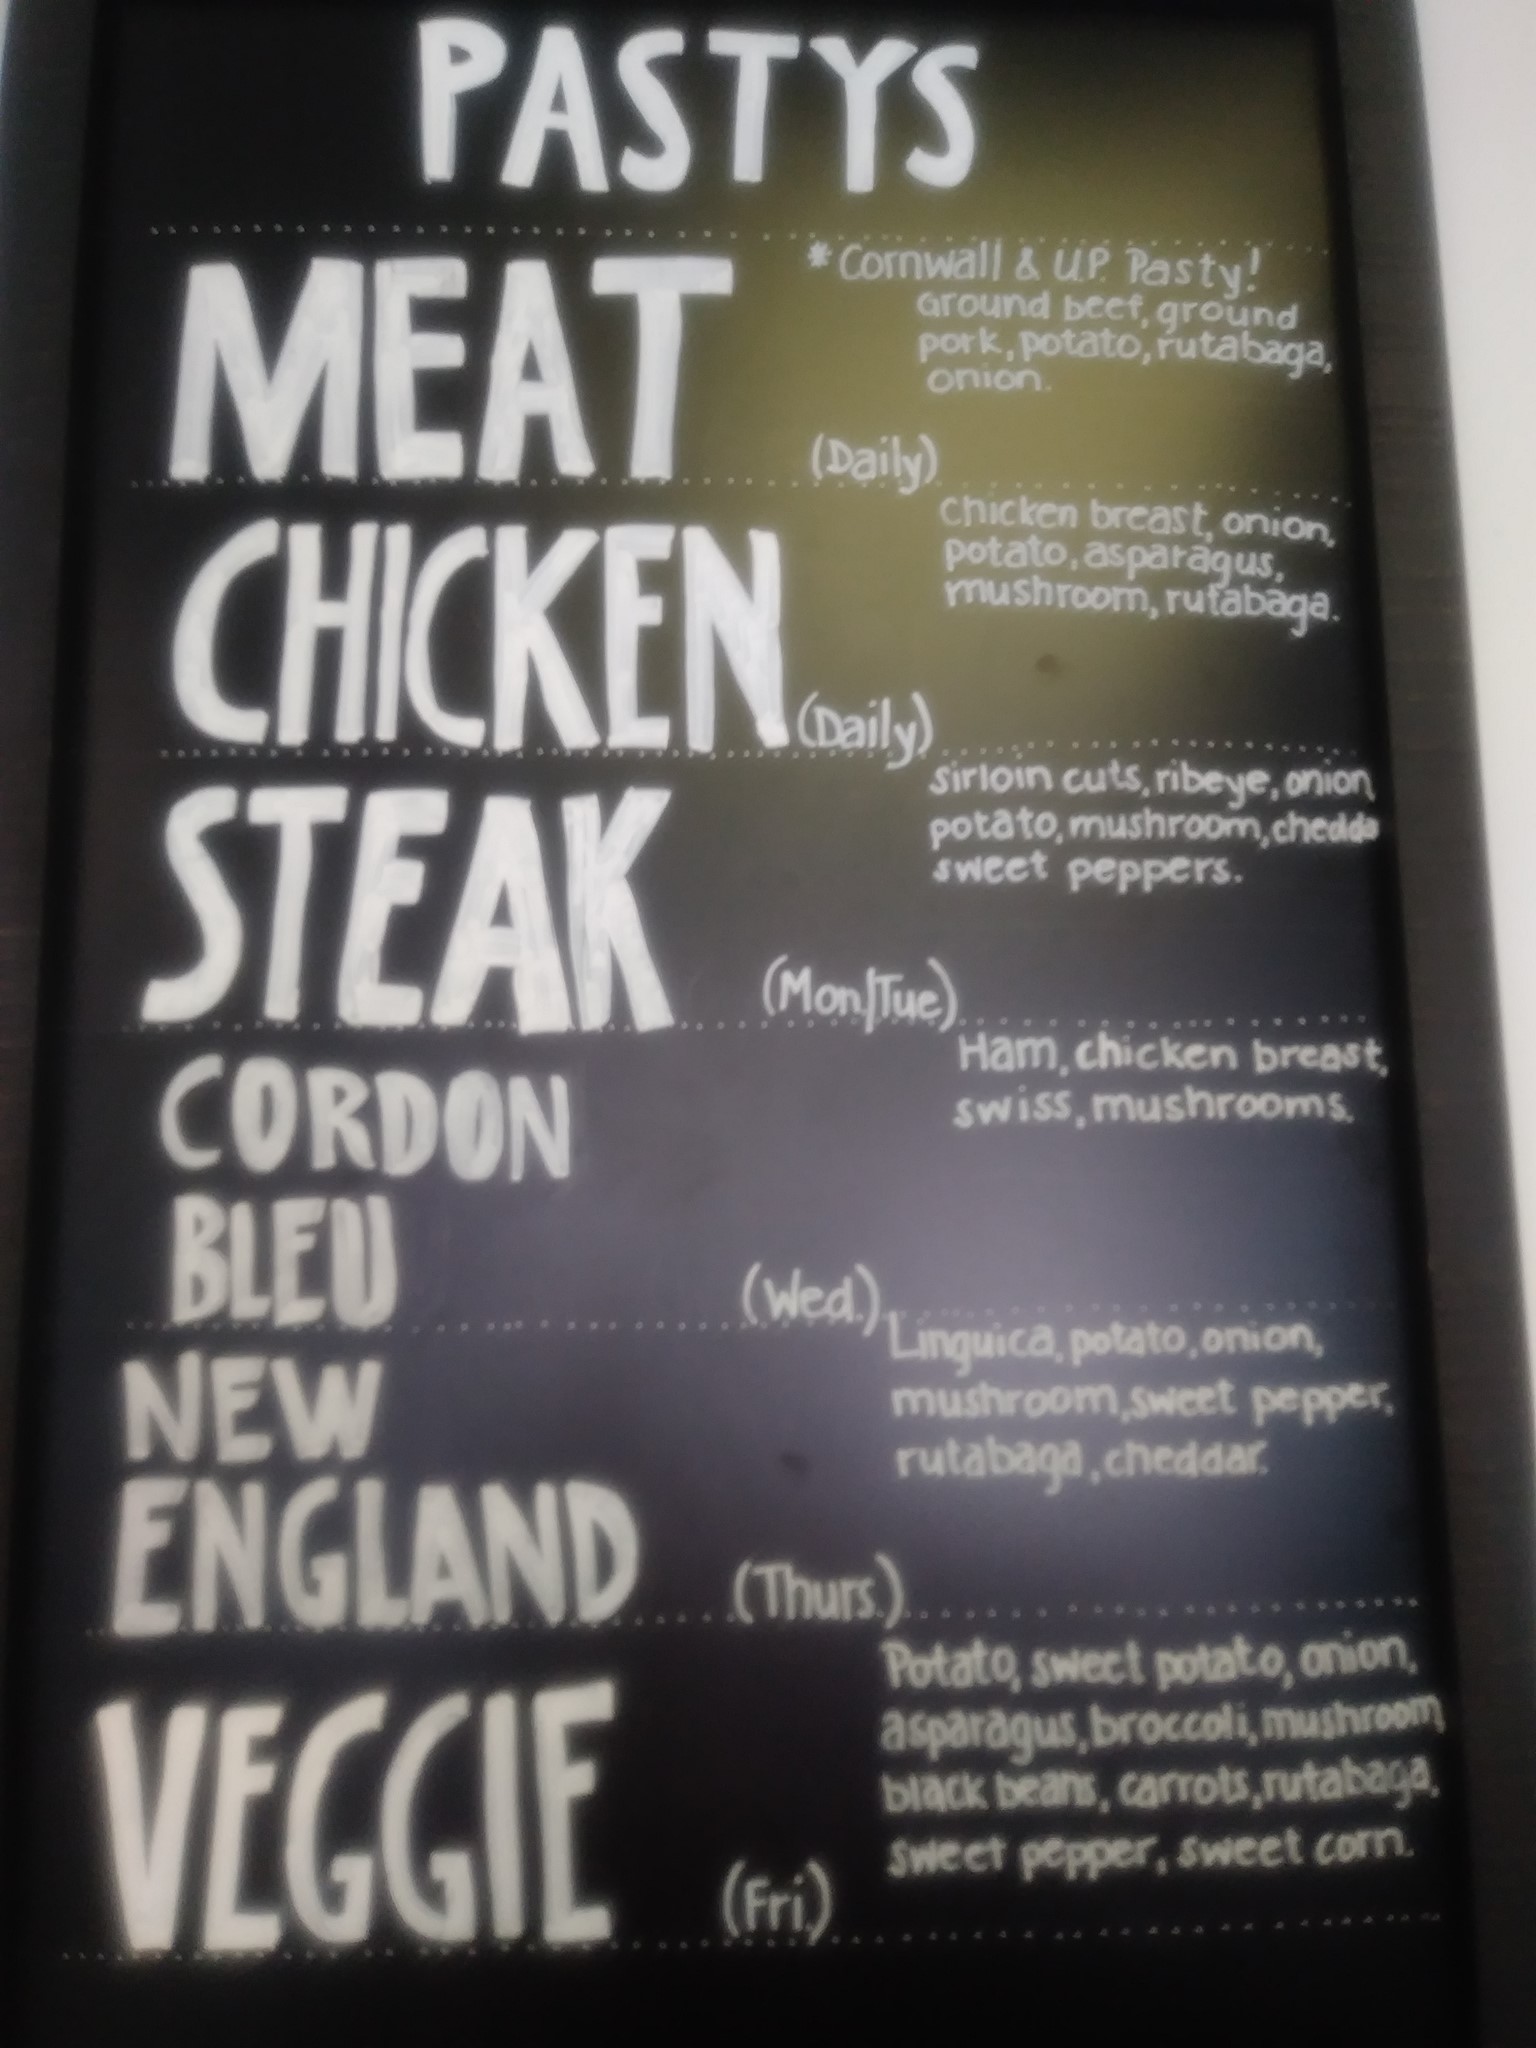 PASTYS
MEAT
*Cornwall & U.P. Pasty!
Ground beef, ground
pork, potato, rutabaga,
onion.
(Daily)
CHICKEN
Chicken breast, onion,
potato, asparagus,
mushroom, rutabaga.
(Daily)
STEAK
sirloin cuts, ribeye, onion
potato, mushroom, chedda
sweet peppers.
(Mon/Tue)
CORDON
BLEU
Ham, chicken breast,
swiss, mushrooms.
(Wed.)
NEW
ENGLAND
Linguica, potato, onion,
mushroom, sweet pepper,
rutabaga, cheddar.
(Thurs.)
VEGGIE
Potato, sweet potato, onion,
asparagus, broccoli, mushroom
black beans, carrots, rutabaga,
sweet pepper, sweet corn.
(Fri.)